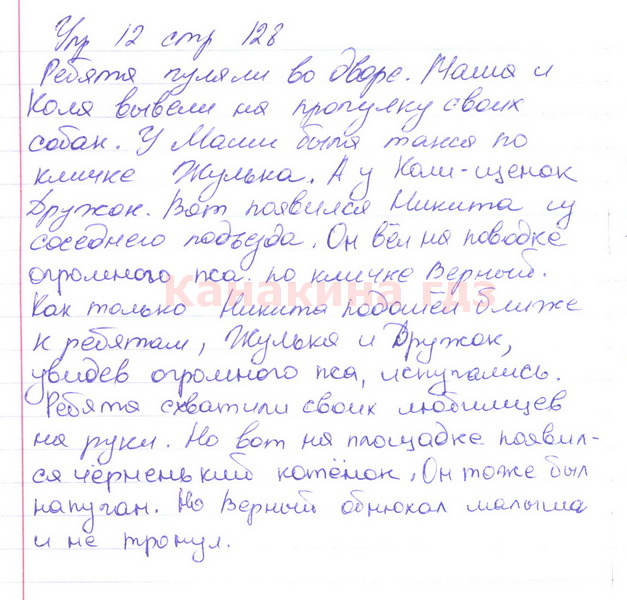 Упр 12 стр 128
Ребята гуляли во дворе. Маша и
Коля вывели на прогулку своих
собак. У Маши была такса по
кличке Жулька. А у Коли-щенок
Дружок. Вот появился Никита из
соседнего подъезда. Он вёл на поводке
огромного пса по кличке Верный.
Как только Никита подошёл ближе
к ребятам, Жулька и Дружок,
увидев огромного пса, испугались.
Ребята схватили своих любимцев
на руки. Но вот на площадке появил-
ся чёрненький котёнок. Он тоже был
напуган. Но Верный обнюхал малыша
и не тронул.
Канакина гдз